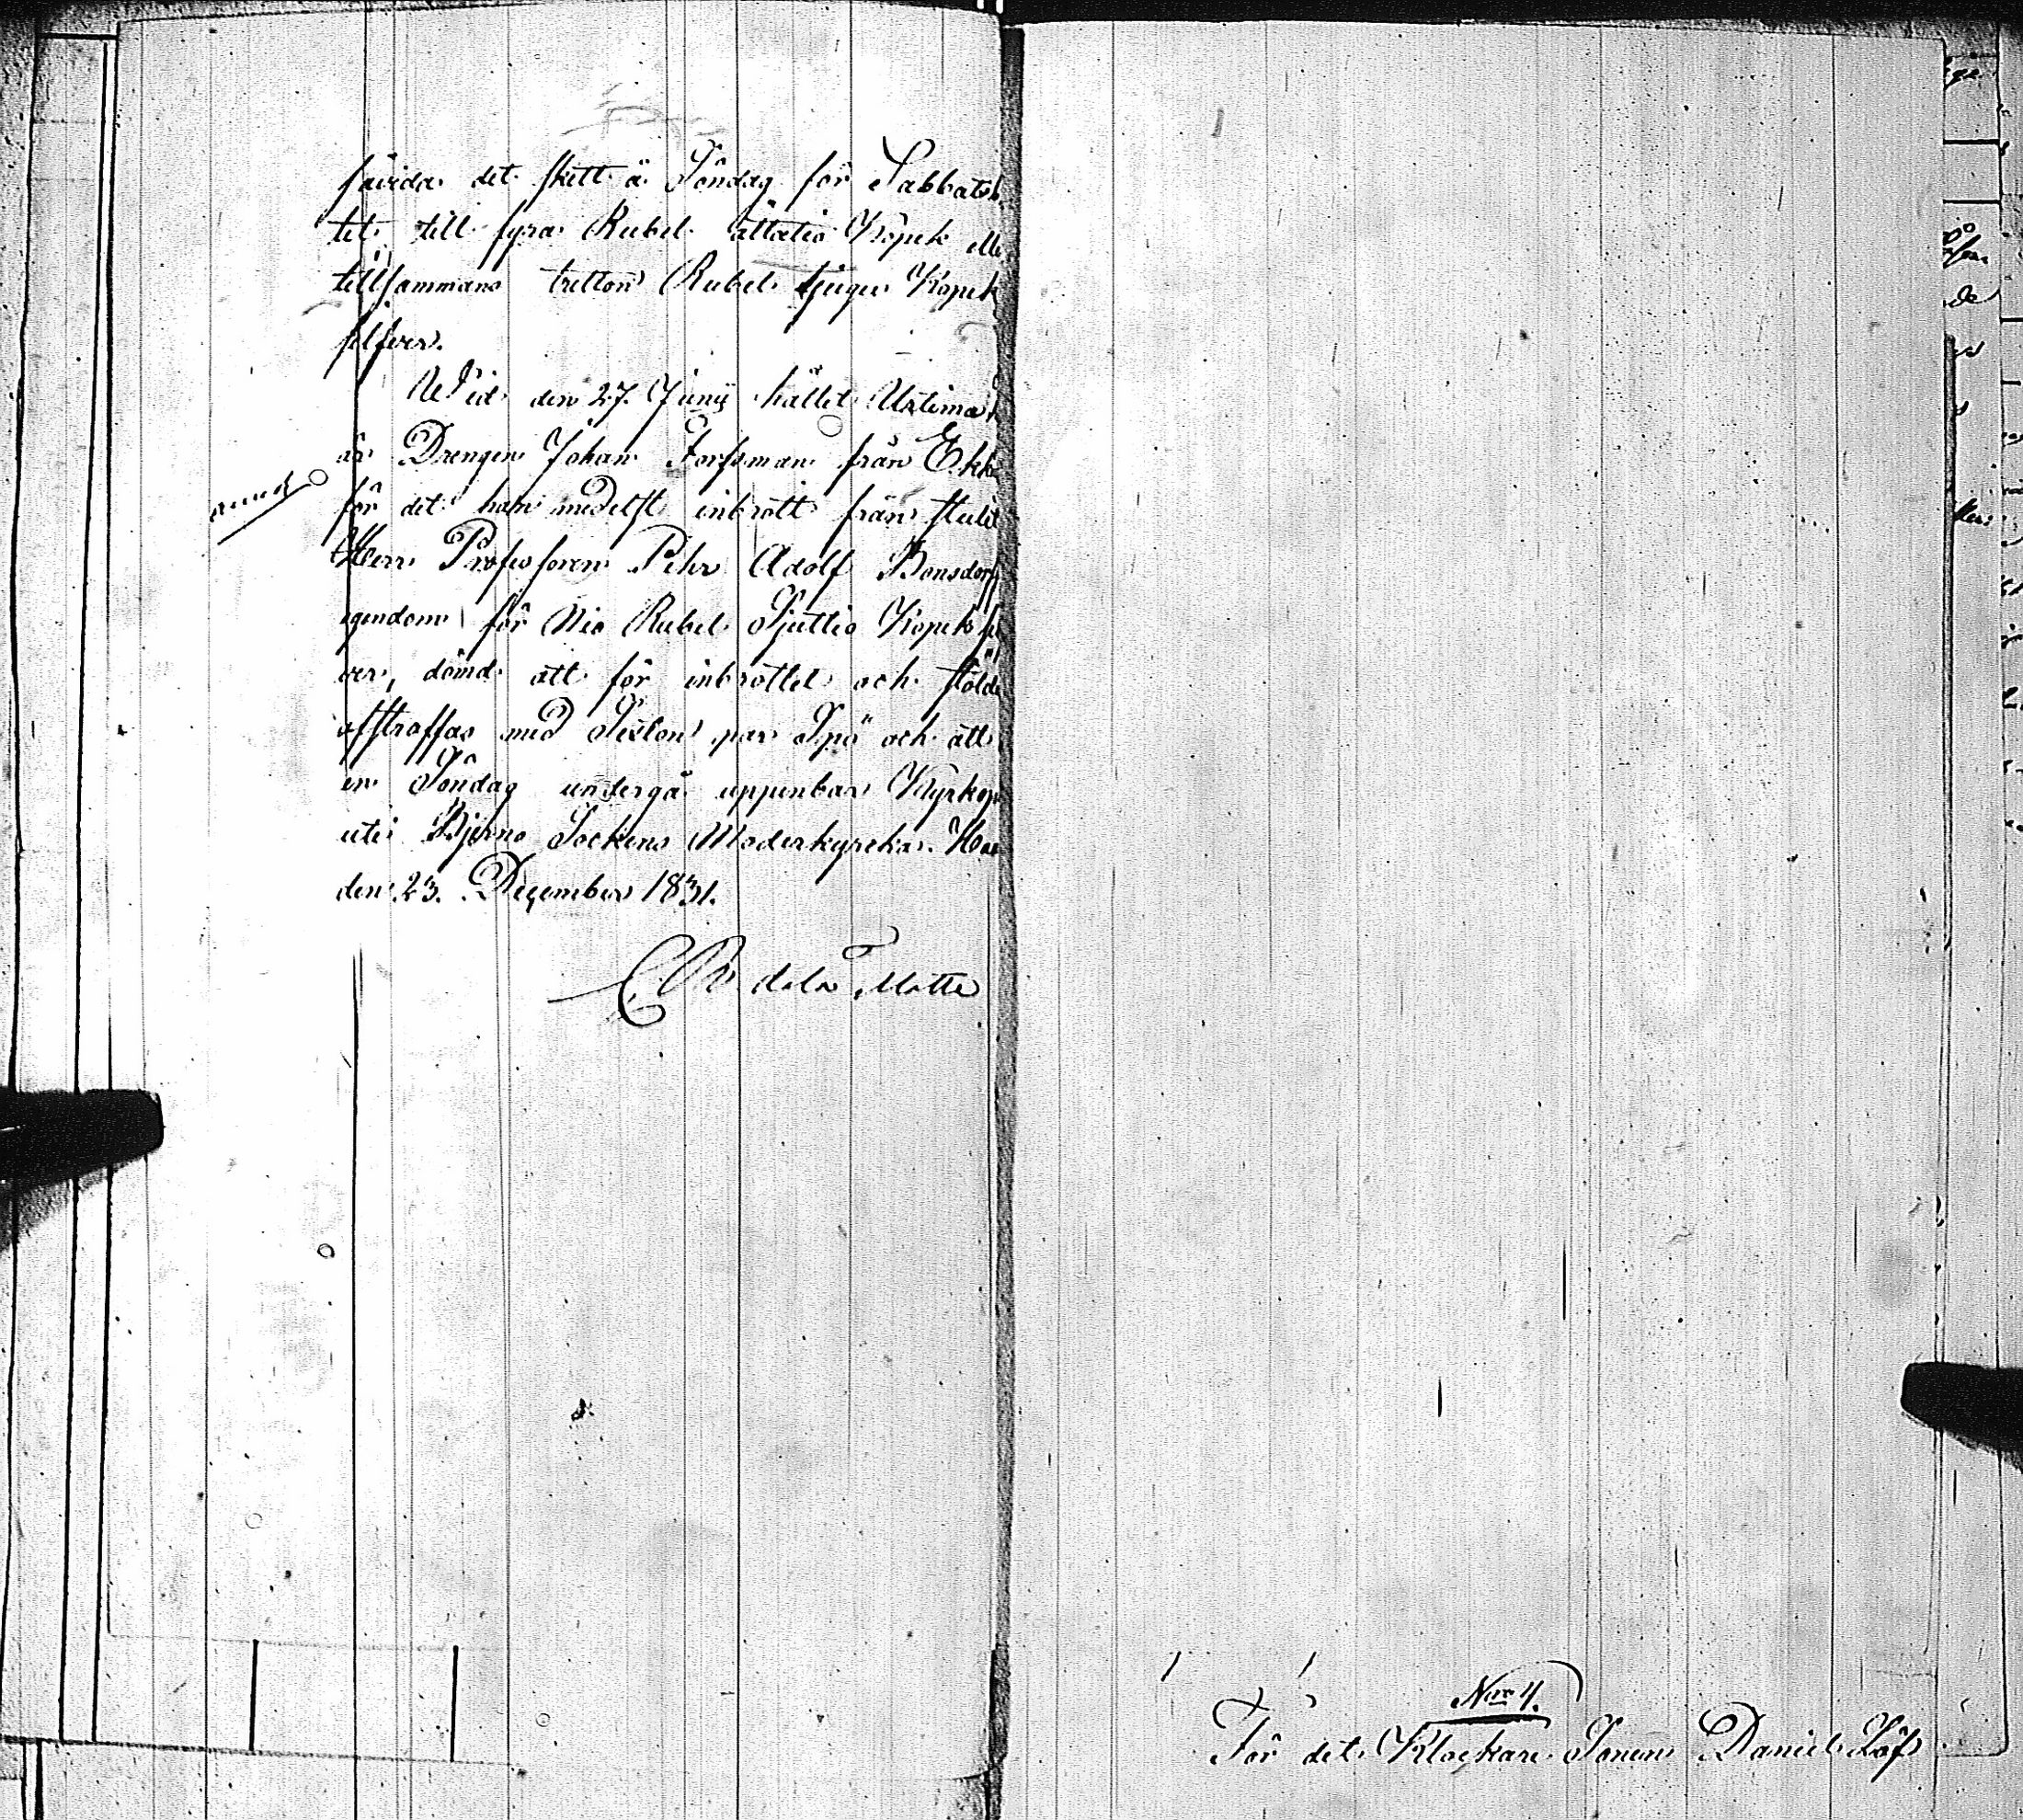 såvida det skett å Söndag för Sabbatsb
tet till fyra Rubel åttatio Kopek ell
tillsammans tretton Rubel tjugu Kopek
silfver.
Wid den 27. Junii hållet Urtima
är Drengen Johan Forssman från Ekk
för det han medelst inbrott från stulit
Herr Professoren Pehr Adolf Bonsdorff
egendom för Nio Rubel Sjuttio Kopek sil
ver, dömd att för inbrottet och stöld
afstraffas med Sexton par Spö och att
en Söndag undergå uppenbar Kyrkop
uti Bjerno Sockens Moderkyrka.
den 23. December 1831.
C R de la Motte
Nro 4.
För det Klockare Sonen Daniel Löf